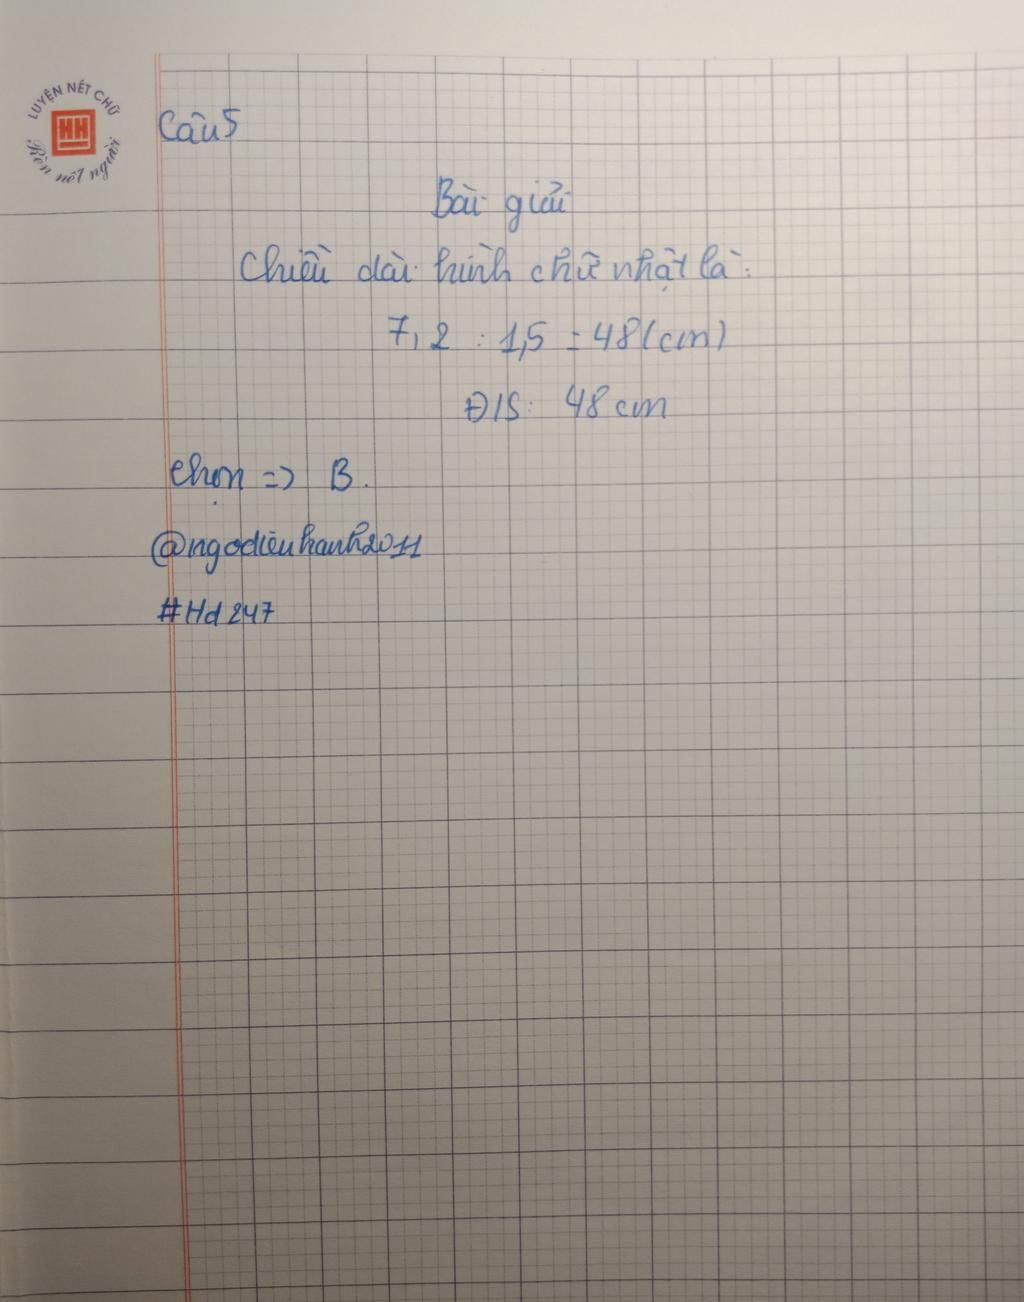 LUYỆN NÉT CHỮ
HH
Rèn nết người
Câu 5
Bài giải
Chiều dài hình chữ nhật là:
7,2 : 1,5 = 48 (cm)
Đ/S: 48 cm
Chọn => B.
@ngodieuhanh2011
#Hd247